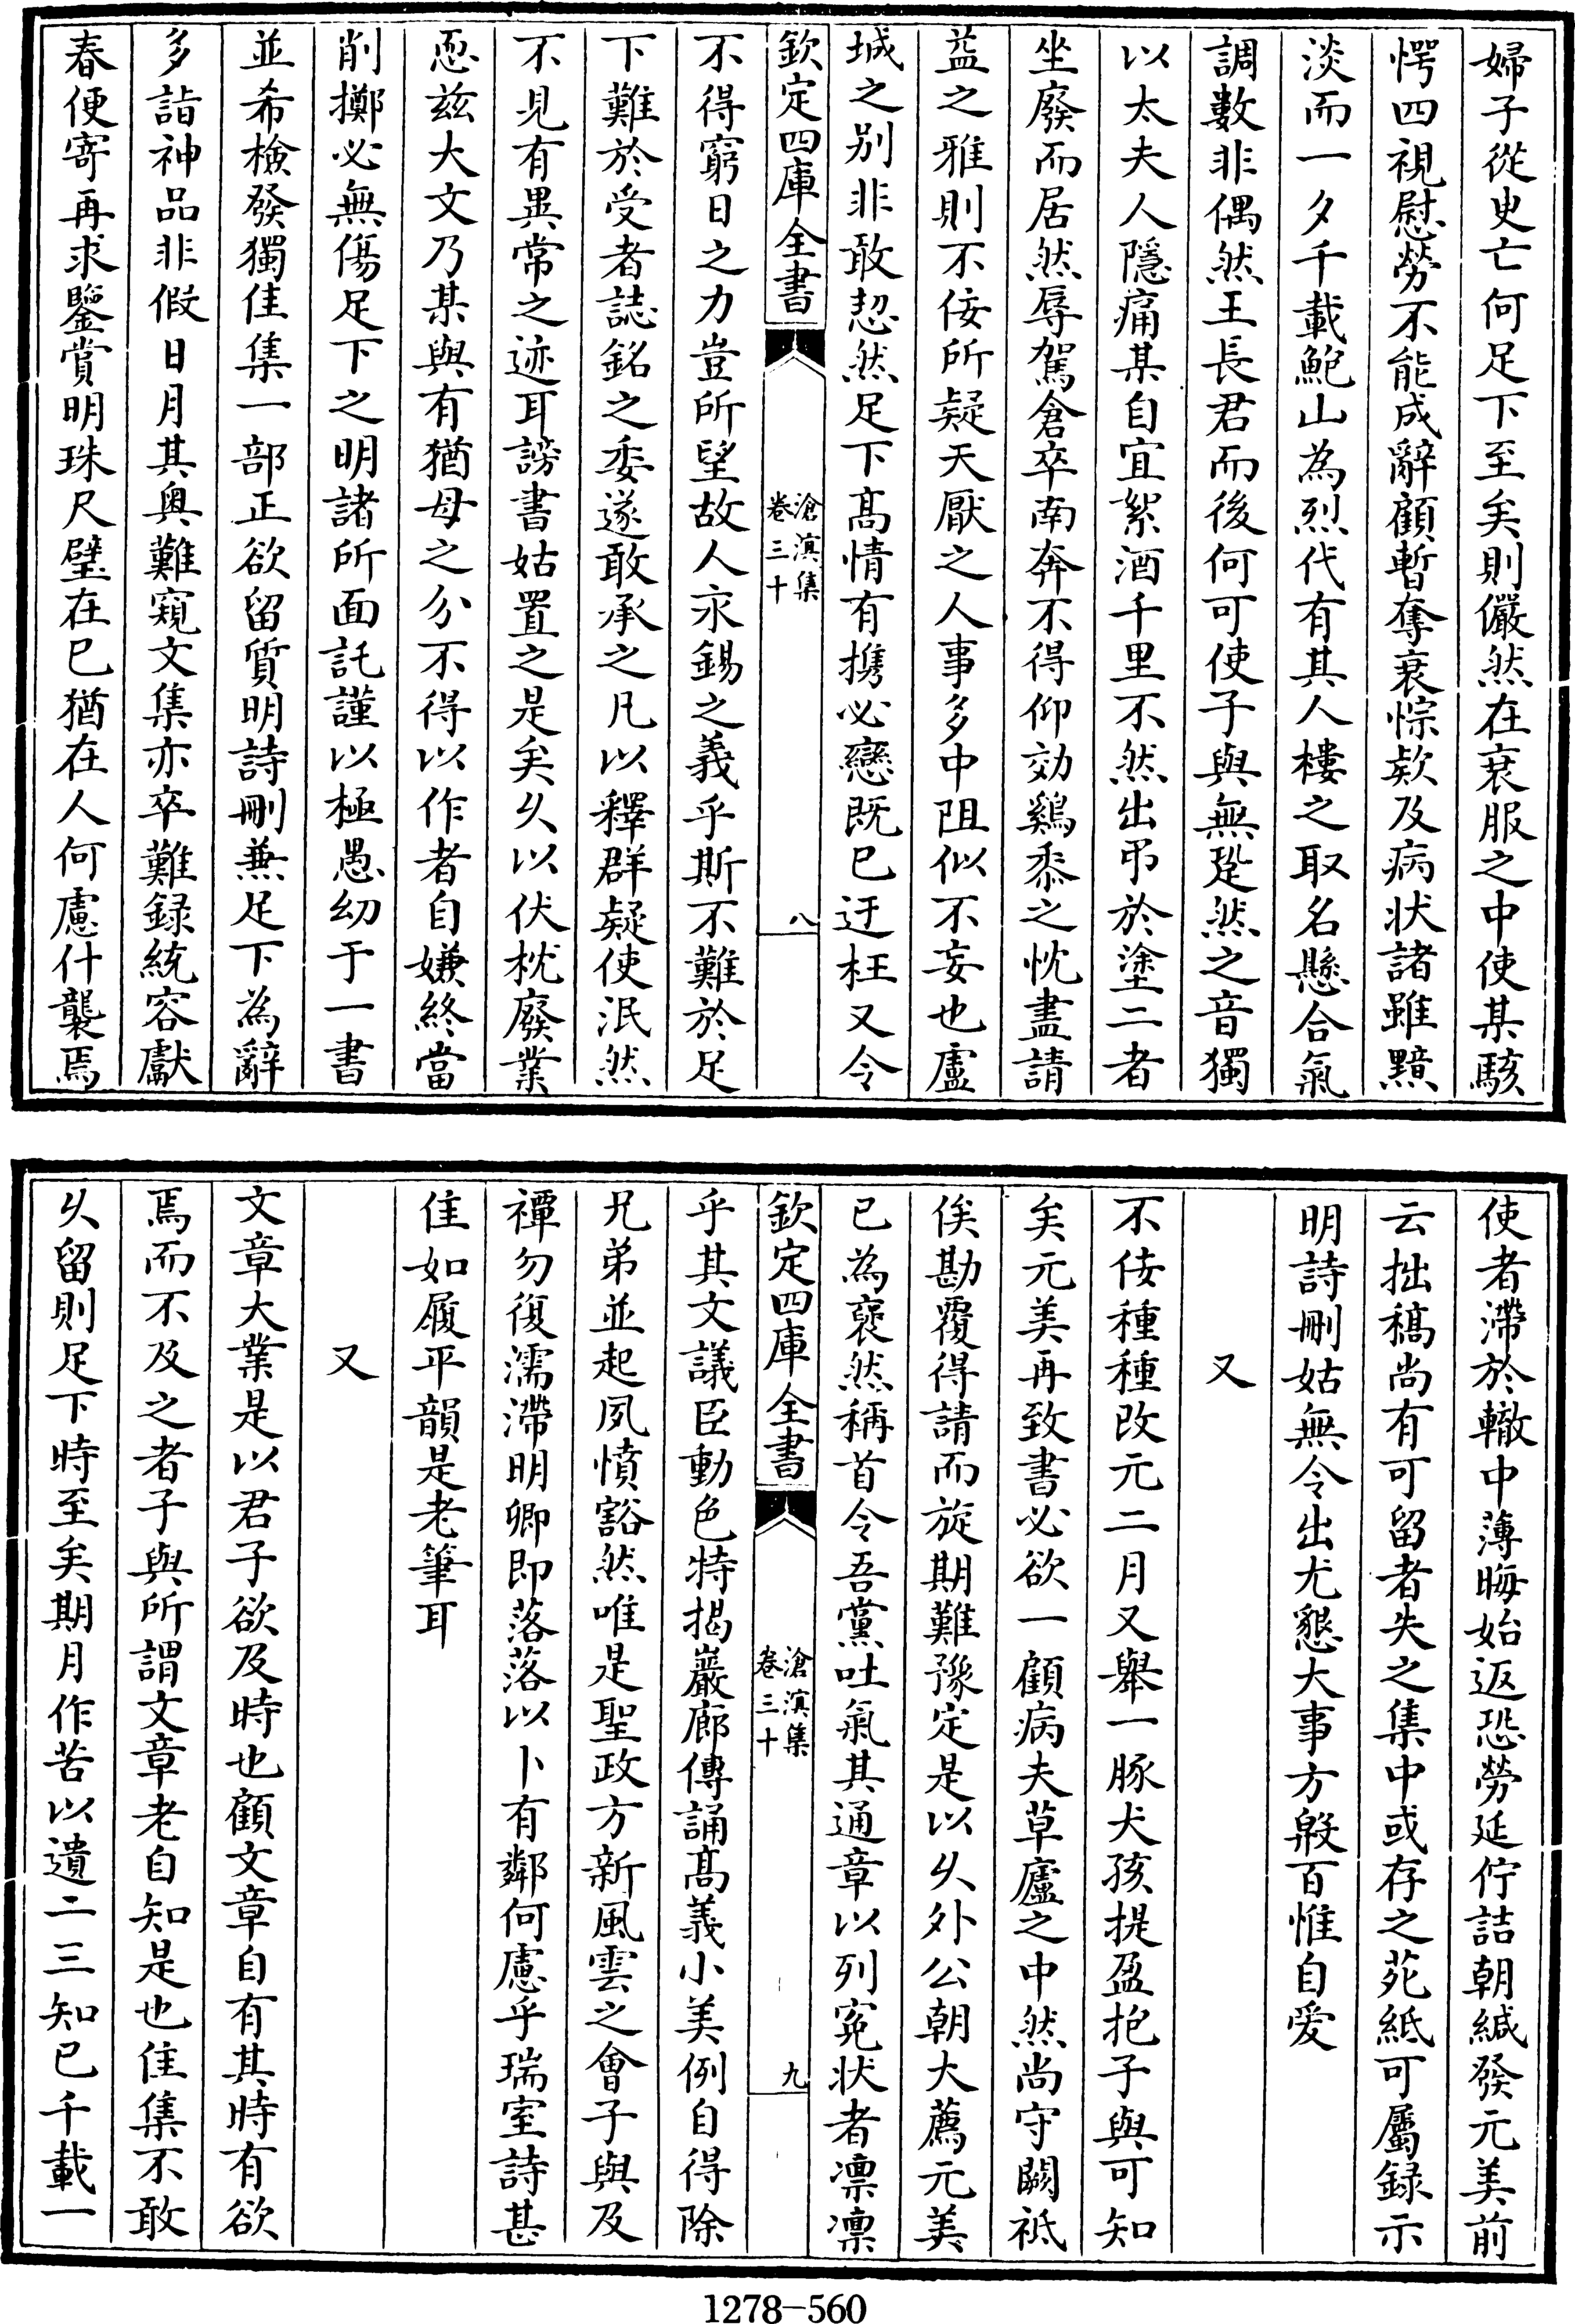 婦子從史亡何足下至矣則儼然在衰服之中使某駭
愕四視慰勞不能成辭顧暫奪衰悰欵及病狀諸雖黯
淡而一夕千載鮑山為烈代有其人樓之取名懸合氣
調數非偶然王長君而後何可使子與無跫然之音獨
以太夫人隱痛某自宜絮酒千里不然出弔於塗二者
坐廢而居然辱駕倉卒南奔不得仰効鷄黍之忱盡請
益之雅則不佞所疑天厭之人事多中阻似不妄也盧
城之别非敢恝然足下髙情有携必戀既已迂枉又令
欽定四庫全書
滄溟集
卷三十
八
不得窮日之力豈所望故人永錫之義乎斯不難於足
下難於受者誌銘之委遂敢承之凡以釋群疑使泯然
不見有異常之迹耳謗書姑置之是矣乆以伏枕廢業
恧兹大文乃某與有猶母之分不得以作者自嫌終當
削擲必無傷足下之明諸所面託謹以極愚幼于一書
並希檢發獨佳集一部正欲留質明詩刪兼足下為辭
多詣神品非假日月其奥難窺文集亦卒難録統容獻
春便寄再求鑒賞明珠尺璧在已猶在人何慮什襲焉
使者滯於轍中薄晦始返恐勞延佇詰朝緘發元美前
云拙稿尚有可留者失之集中或存之苑紙可屬録示
明詩刪姑無令出尤懇大事方殷百惟自愛
又
不佞種種改元二月又舉一豚犬孩提盈抱子與可知
矣元美再致書必欲一顧病夫草廬之中然尚守闕祗
俟勘覆得請而旋期難豫定是以乆外公朝大薦元美
已為裒然稱首令吾黨吐氣其通章以列寃状者凛凛
欽定四庫全書
滄溟集
卷三十
九
乎其文議臣動色特揭巖廊傳誦髙義小美例自得除
兄弟並起夙憤豁然唯是聖政方新風雲之會子與及
禫勿復濡滯明卿即落落以卜有鄰何慮乎瑞室詩甚
佳如履平韻是老筆耳
又
文章大業是以君子欲及時也顧文章自有其時有欲
焉而不及之者子與所謂文章老自知是也佳集不敢
乆留則足下時至矣期月作苦以遺二三知已千載一
1278-560